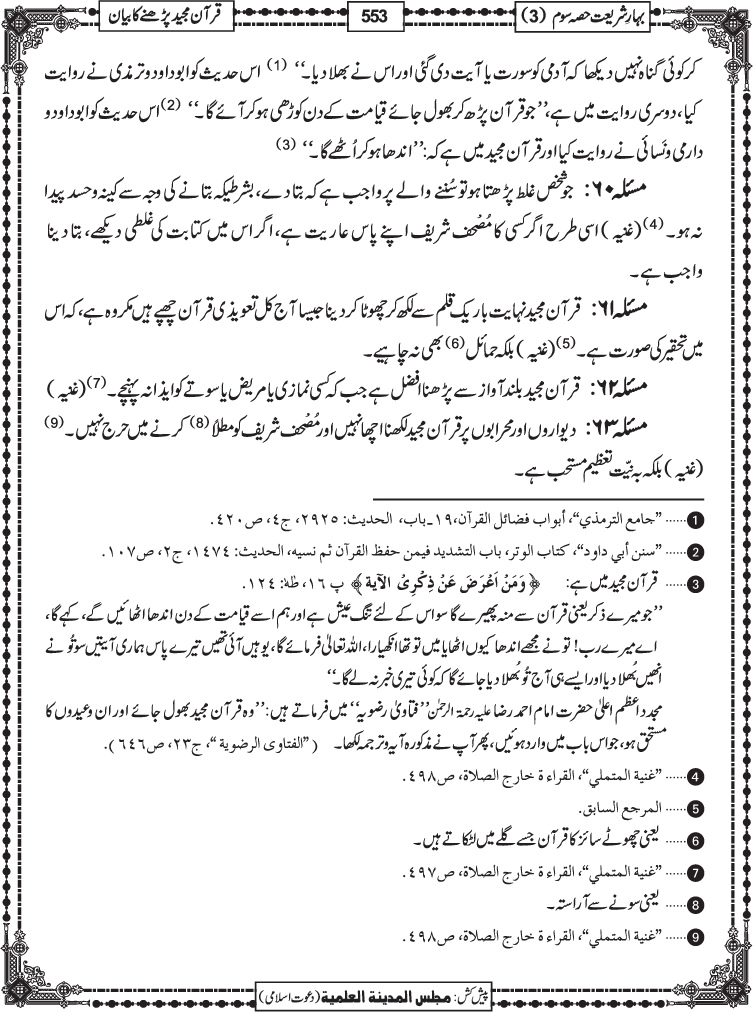 بہارِشریعت حصہ سوم (3)
553
قرآن مجید پڑھنے کا بیان
کر کوئی گناہ نہیں دیکھا کہ آدمی کو سورت یا آیت دی گئی اور اس نے بھلا دیا۔‘‘ (1) اس حدیث کو ابوداود و ترمذی نے روایت
کیا، دوسری روایت میں ہے، ’’جو قرآن پڑھ کر بھول جائے قیامت کے دن کوڑھی ہو کر آئے گا۔‘‘ (2) اس حدیث کو ابوداود و
دارمی و نَسائی نے روایت کیا اور قرآن مجید میں ہے کہ: ’’اندھا ہو کر اُٹھے گا۔‘‘ (3)
مسئلہ ۶۰: جو شخص غلط پڑھتا ہو تو سُننے والے پر واجب ہے کہ بتا دے، بشرطیکہ بتانے کی وجہ سے کینہ و حسد پیدا
نہ ہو۔ (4) (غنیہ) اسی طرح اگر کسی کا مُصْحف شریف اپنے پاس عاریت ہے، اگر اس میں کتابت کی غلطی دیکھے، بتا دینا
واجب ہے۔
مسئلہ ۶۱: قرآن مجید نہایت باریک قلم سے لکھ کر چھوٹا کر دینا جیسا آج کل تعویذی قرآن چھپے ہیں مکروہ ہے، کہ اس
میں تحقیر کی صورت ہے۔ (5) (غنیہ) بلکہ حمائل (6) بھی نہ چاہیے۔
مسئلہ ۶۲: قرآن مجید بلند آواز سے پڑھنا افضل ہے جب کہ کسی نمازی یا مریض یا سوتے کو ایذا نہ پہنچے۔ (7) (غنیہ)
مسئلہ ۶۳: دیواروں اور محرابوں پر قرآن مجید لکھنا اچھا نہیں اور مُصْحف شریف کو مطلّا (8) کرنے میں حرج نہیں۔ (9)
(غنیہ) بلکہ بہ نیّت تعظیم مستحب ہے۔
1 ...... ”جامع الترمذي“، أبواب فضائل القرآن، ۱۹۔باب، الحدیث: ۲۹۲۵، ج٤، ص٤۲۰.
2 ...... ”سنن أبي داود“، کتاب الوتر، باب التشدید فیمن حفظ القرآن ثم نسیه، الحدیث: ۱٤۷٤، ج۲، ص۱۰۷.
3 ...... قرآن مجید میں ہے: ﴿ وَمَنْ اَعْرَضَ عَنْ ذِكْرِیْ الآیة ﴾ پ ۱٦، طٰهٰ: ۱۲٤.
’’جو میرے ذکر یعنی قرآن سے منہ پھیرے گا سو اس کے لئے تنگ عیش ہے اور ہم اسے قیامت کے دن اندھا اٹھائیں گے، کہے گا،
اے میرے رب! تو نے مجھے اندھا کیوں اٹھایا میں تو تھا انکھیارا، اللہ تعالیٰ فرمائے گا، یوہیں آئی تھیں تیرے پاس ہماری آیتیں سو تُو نے
انھیں بُھلا دیا اور ایسے ہی آج تُو بُھلا دیا جائے گا کہ کوئی تیری خبر نہ لے گا۔‘‘
مجدد اعظم اعلیٰ حضرت امام احمد رضا علیہ رحمۃ الرحمٰن ’’فتاویٰ رضویہ‘‘ میں فرماتے ہیں: ’’وہ قرآن مجید بھول جائے اور ان وعیدوں کا
مستحق ہو، جو اس باب میں وارد ہوئیں، پھر آپ نے مذکورہ آیہ و ترجمہ لکھا۔ (”الفتاوی الرضویة“، ج۲۳، ص٦٤٦).
4 ...... ”غنیة المتملي“، القراء ة خارج الصلاة، ص٤۹۸.
5 ...... المرجع السابق.
6 ...... یعنی چھوٹے سائز کا قرآن جسے گلے میں لٹکاتے ہیں۔
7 ...... ”غنیة المتملي“، القراء ة خارج الصلاة، ص٤۹۷.
8 ...... یعنی سونے سے آراستہ۔
9 ...... ”غنیة المتملي“، القراء ة خارج الصلاة، ص٤۹۸.
پیش کش: مجلس المدینة العلمیة (دعوت اسلامی)